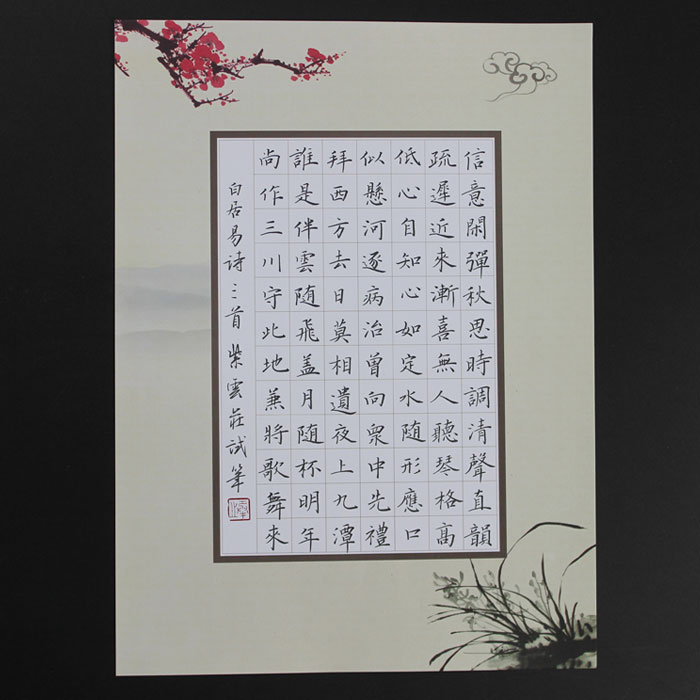 信意閑彈秋思時調清聲直韻
疏遲近來漸喜無人聽琴格高
低心自知心如定水随形應口
似懸河逐病治曾向衆中先禮
拜西方去日莫相遺夜上九潭
誰是伴雲随飛盖月随杯明年
尚作三川守此地蒹將歌舞來
白居易诗三首 紫雲莊试筆